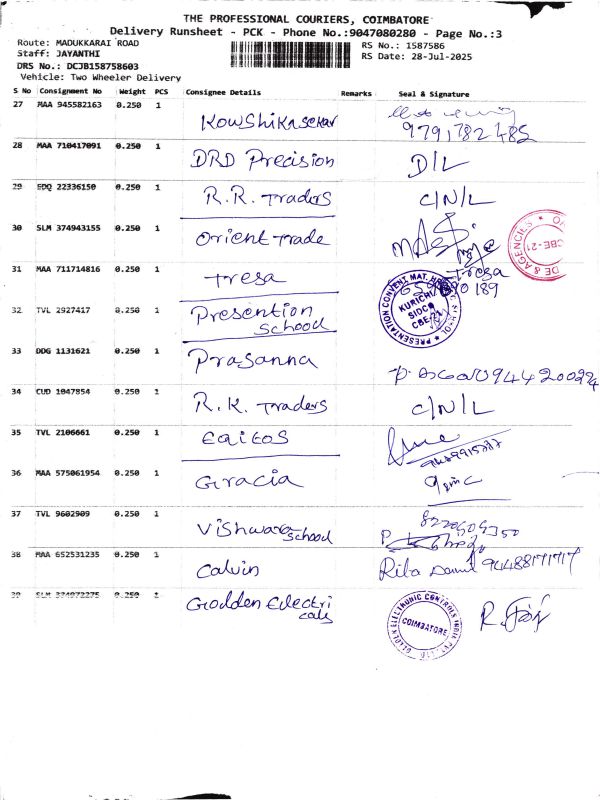 THE PROFESSIONAL COURIERS, COIMBATORE
Delivery Runsheet - PCK - Phone No.:9047080280 - Page No.:3
Route: MADUKKARAI ROAD
RS No.: 1587586
Staff: JAYANTHI
RS Date: 28-Jul-2025
DRS No.: DCJB158758603
Vehicle: Two Wheeler Delivery
S No Consignment No Weight PCS Consignee Details Remarks Seal & Signature
27 MAA 945582163 0.250 1 Kowshikasekar
9791782485
28 MAA 710417091 0.250 1 DRD Precision D/L
29 EDQ 22336150 0.250 1 R.R. Traders C/N/L
30 SLM 374943155 0.250 1 Orient Trade
DE & AGENCIES ★ CBE-21
31 MAA 711714816 0.250 1 Tresa Tresa
32 TVL 2927417 0.250 1 Presention School
PRESENTATION CONVENT. MAT. SCHOOL ★ KURICHI SIDCO CBE-21
33 DDG 1131621 0.250 1 Prasanna
34 CUD 1047854 0.250 1 R.K. Traders C/N/L
35 TVL 2106661 0.250 1
36 MAA 575061954 0.250 1 Gracia
37 TVL 9602909 0.250 1 Vishwara School
38 MAA 652531235 0.250 1 Calvin Rita
39 SLM 374972275 0.250 1 Godden Edectri cals
ELECTRONIC CONTROLS INDIA PVT. LTD. COIMBATORE